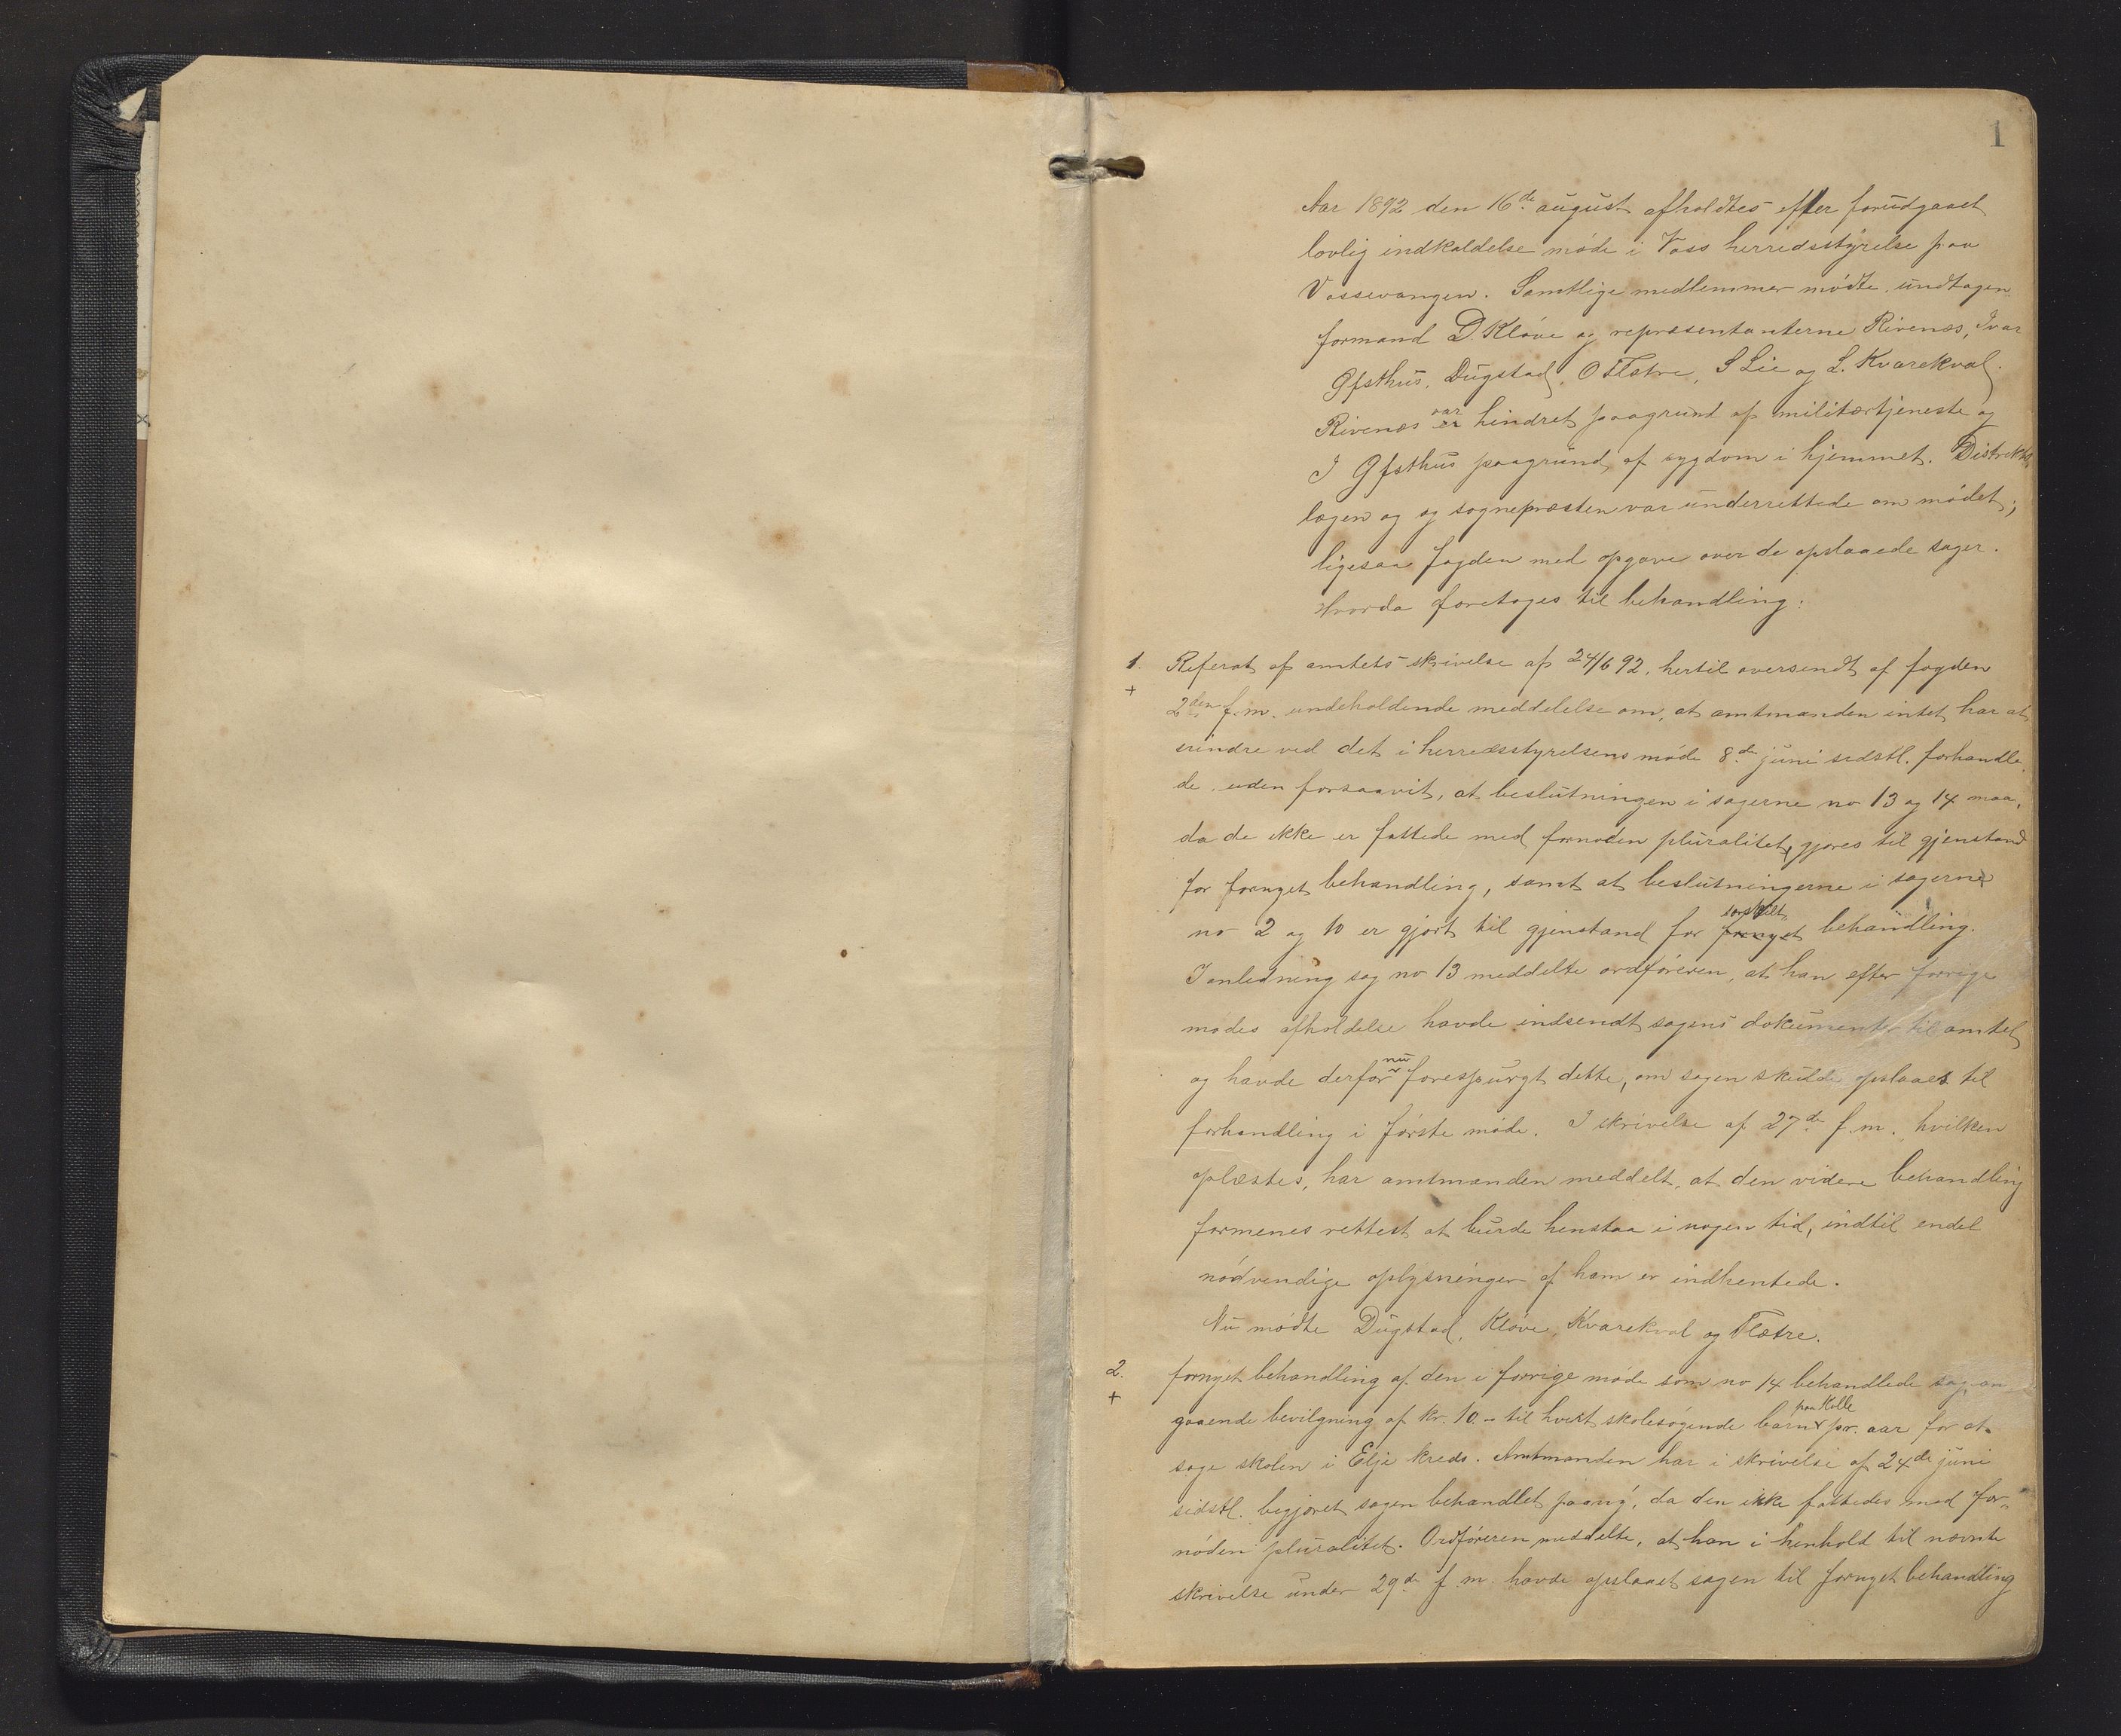 1
Aar 1892 den 16de august afholdtes efter forudgaaet
lovlig indkaldelse møde i Voss herredsstyrelse paa
Vossevangen. Samtlige medlemmer mødte undtagen
formand D. Kløve og repræsentanterne Rivenæs, Ivar
Gjsthus, Dugstad, O Flatre, S Lie og L. Kvarekval.
Rivenæs er var hindret paagrund af militærtjeneste og
I Gjsthus paagrund af sygdom i hjemmet. Distrikts
lægen og og sognepræsten var underrettede om mødet;
ligesaa fogden med opgave over de opslaaede sager.
Hvorda foretoges til behandling:
1. Referat af amtets skrivelse af 24/6 92, hertil oversendt af fogden
+ 2den f.m. indeholdende meddelelse om, at amtmanden intet har at
erindre ved det i herredsstyrelsens møde 8de juni sidstl. forhandle
de, uden forsaavit, at beslutningen i sagerne no 13 og 14 maa,
da de ikke er fattede med fornøden pluralitet, gjøres til gjenstand
for fornyet behandling, samt at beslutningerne i sagerne
no 2 og 10 er gjort til gjenstand for fornyet særskilt behandling.
I anledning sag no 13 meddelte ordføreren, at han efter forrige
mødes afholdelse havde indsendt sagens dokumenter til amtet
og havde derfor nu forespurgt dette, om sagen skulde opslaaes til
forhandling i første møde. I skrivelse af 27de f.m. hvilken
oplæstes, har amtmanden meddelt, at den videre behandling
formenes rettest at burde henstaa i nogen tid, indtil endel
nødvendige oplysninger af ham er indhentede.
Nu mødte Dugstad, Kløve, Kvarekval og Flatre.
2. fornyet behandling af den i forrige møde som no 14 behandlede sag an
+ gaaende bevilgning af kr. 10.- til hvert skolesøgende barn paa Kolle pr. aar for at
søge skolen i Elje kreds. Amtmanden har i skrivelse af 24de juni
sidstl. begjæret sagen behandlet paany, da den ikke fattedes med for-
nøden pluralitet. Ordføreren meddelte, at han i henhold til nævnte
skrivelse under 29de f.m. havde opslaaet sagen til fornyet behandling